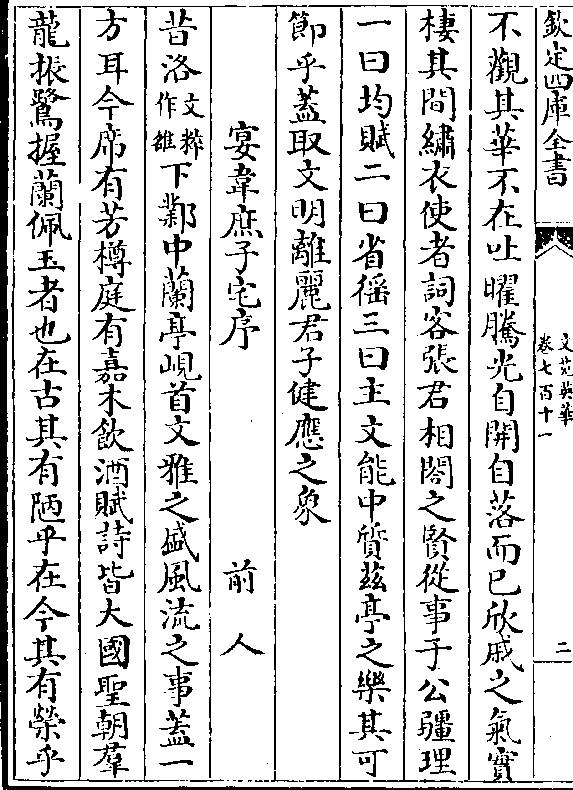 欽定四庫全書
文苑英華
卷七百十一
二
不觀其華不在吐曜騰光自開自落而已欣戚之氣實
棲其間繡衣使者詞客張君相閣之賢從事于公疆理
一曰均賦二曰省徭三曰主文能中質茲亭之樂其可
節乎蓋取文明離麗君子健應之象
宴韋庶子宅序 前人
昔洛文粹作雒下鄴中蘭亭峴首文雅之盛風流之事蓋一
方耳今席有芳樽庭有嘉木飲酒賦詩皆大國聖朝羣
龍振鷺握蘭佩玉者也在古其有陋乎在今其有榮乎